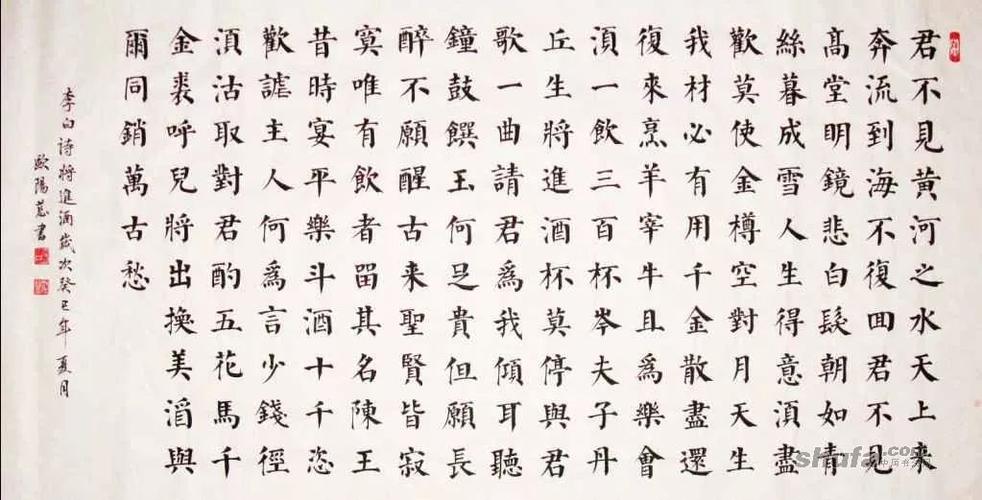 君不見黃河之水天上來
奔流到海不復囬君不見
髙堂明鏡悲白髮朝如青
絲暮成雪人生得意須盡
歡莫使金樽空對月天生
我材必有用千金散盡還
復來烹羊宰牛且爲樂會
須一飲三百杯岑夫子丹
丘生將進酒杯莫停與君
歌一曲請君爲我傾耳聽
鐘鼓饌玉何足貴但願長
醉不願醒古来聖賢皆寂
寞唯有飲者畱其名陳王
昔時宴平樂斗酒十千恣
歡謔主人何爲言少錢徑
須沽取對君酌五花馬千
金裘呼兒將出換美酒與
爾同銷萬古愁
李白詩將進酒歲次癸巳年夏月
歐陽書
shufa.com